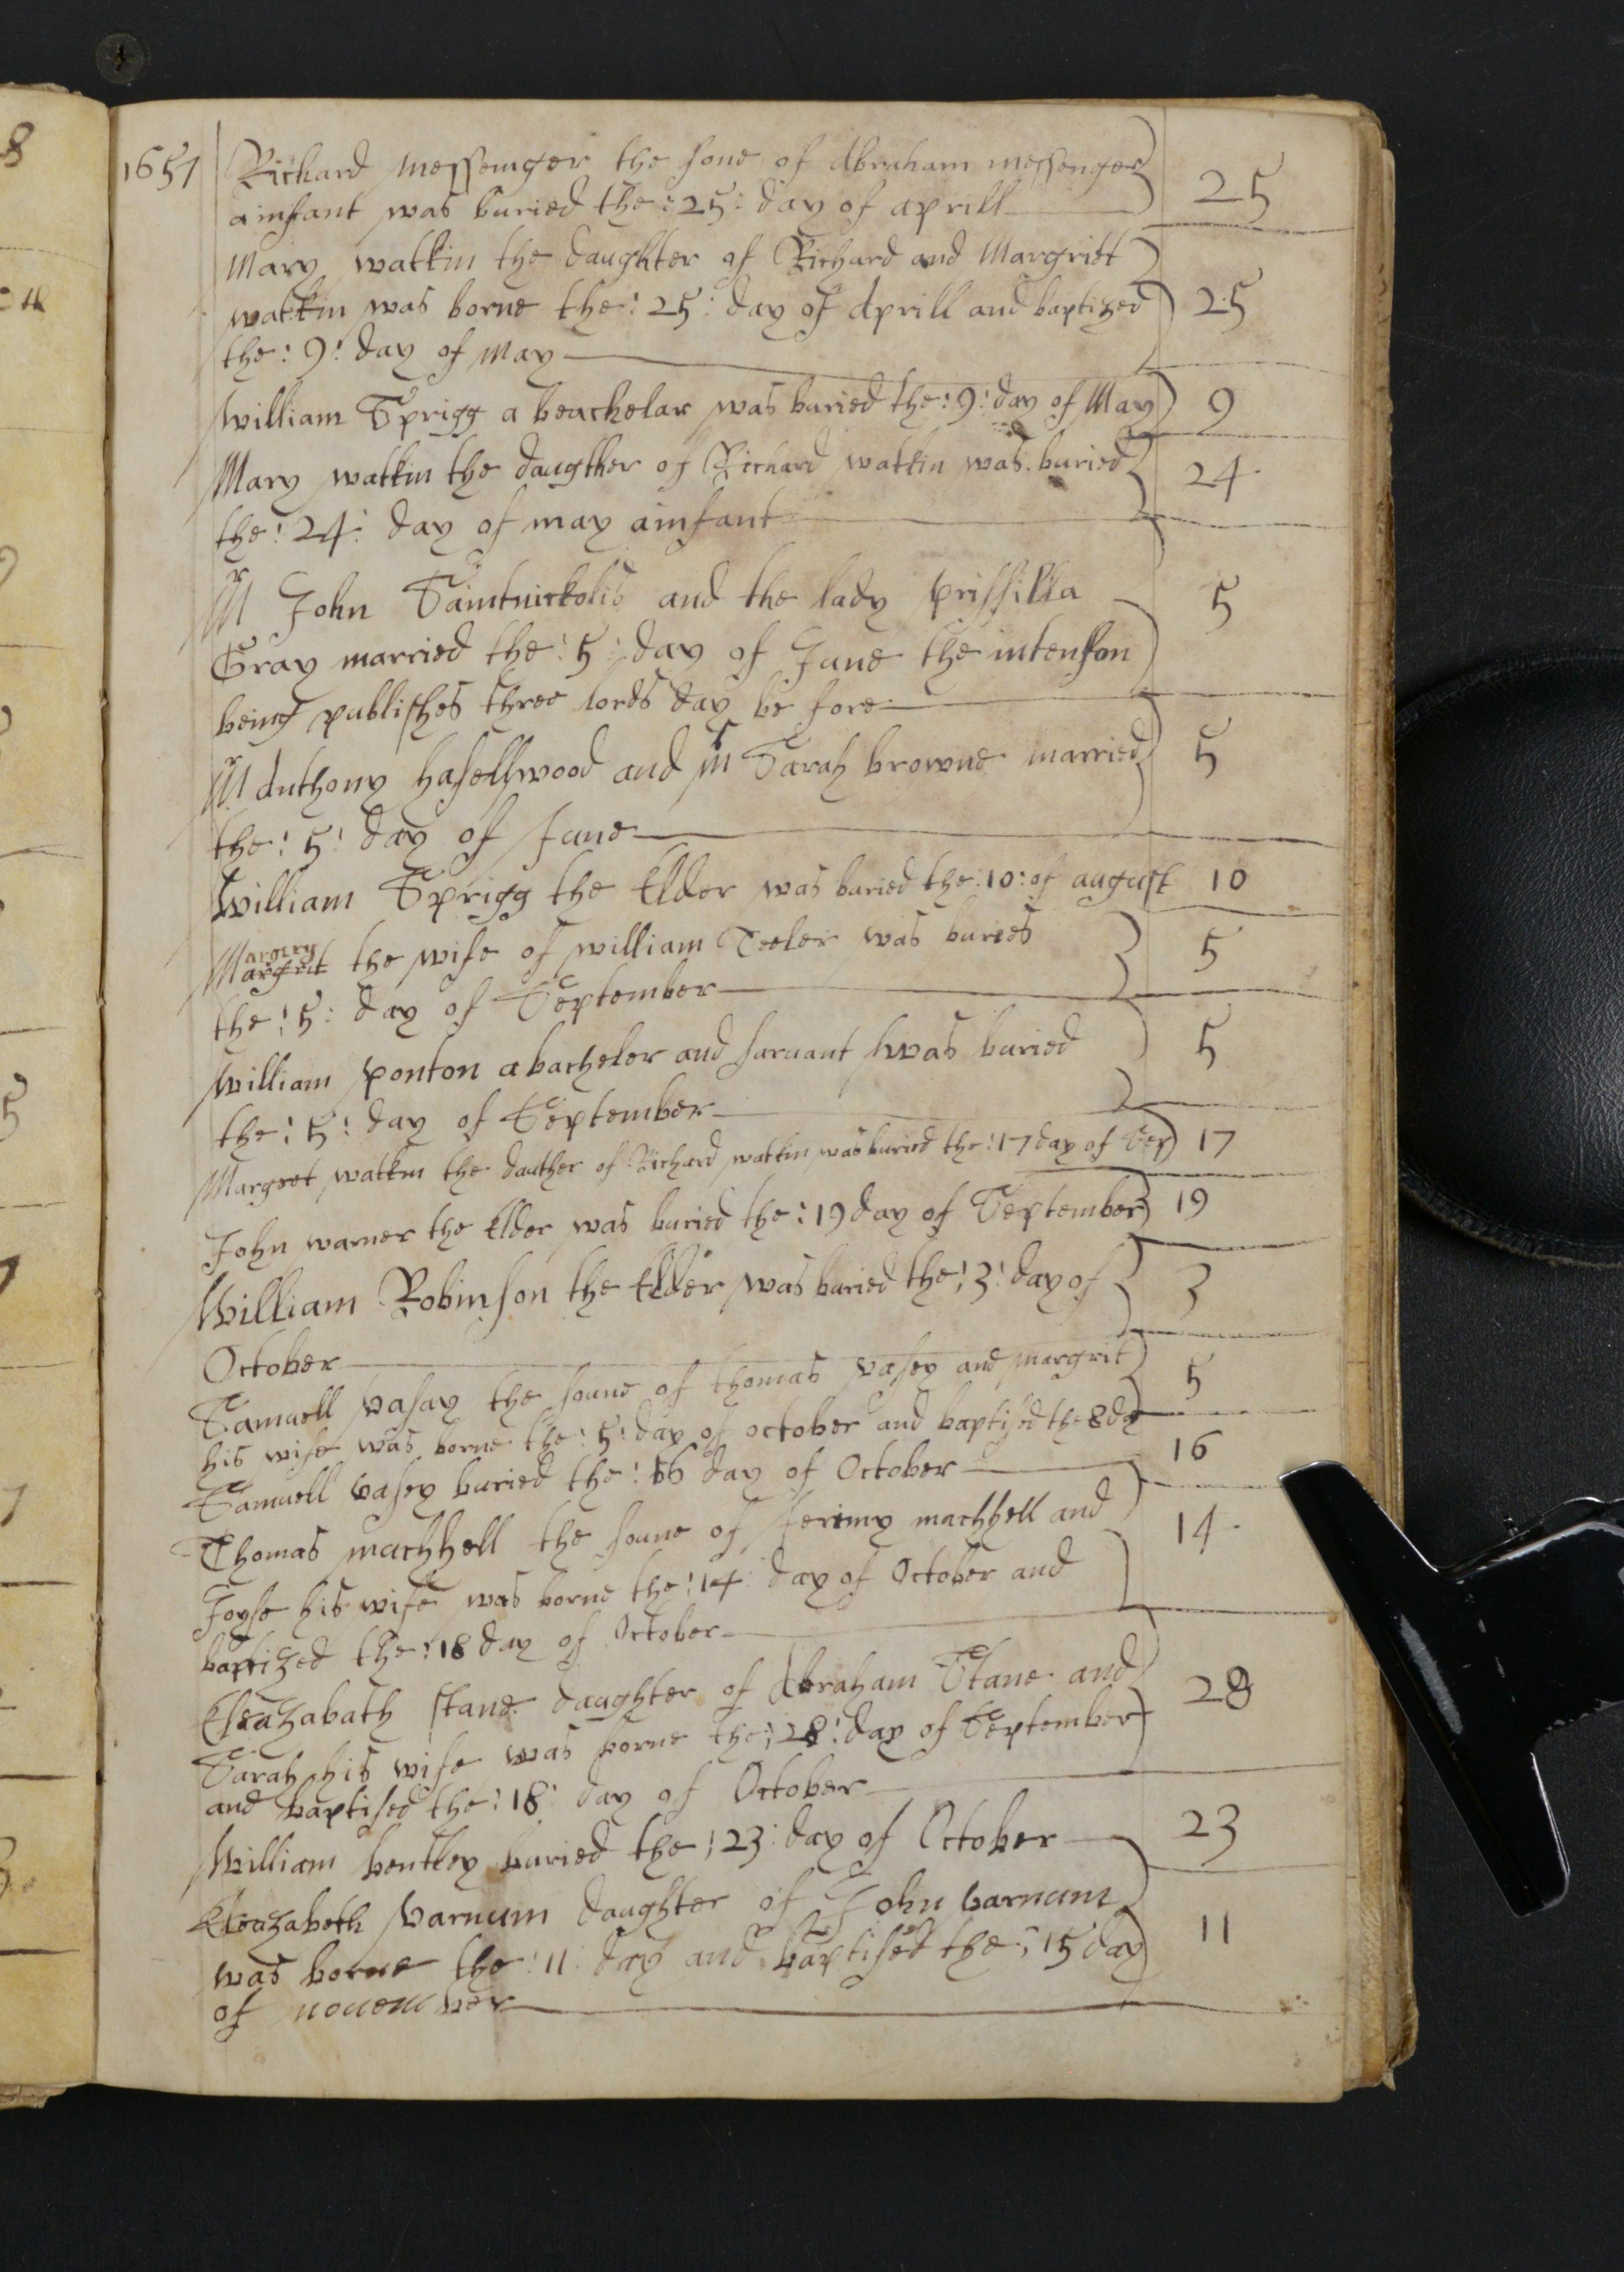 1657 Richard messenger the sone of Abraham messenger 25
ainfant was buried the : 25 : day of aprill
Mary watkin the daughter of Richard and Margriet
watkin was borne the : 25 : day of Aprill and baptized 25
the : 9 : day of may
William Sprigg a beachelar was buried the : 9 : day of May 9
Mary watkin the daugther of Richard watkin was buried 24
the : 24 : day of may ainfant
Mr John Saintnickolis and the lady prissilla 5
Gray married the : 5 : day of June the intenson
being publishes three lords day be fore
Mr Anthony hasellwood and Ms Sarah browne married 5
the : 5 : day of June
William Sprigg the Elder was buried the : 10 : of august 10
Margery
Margrit the wife of william Teeler was buries 5
the : 5 : day of September
William ponton a bacheler and saruant was buried 5
the : 5 : day of September
Margret watkin the dauther of Richard watkin was buried the : 17 day of Sep 17
John warner the Elder was buried the : 19 day of September 19
William Robinson the Elder was buried the : 3 : day of 3
October
Samuell vasay the soune of thomas vasey and margrit 5
his wife was borne the : 5 : day of october and baptised the 8 da
Samuell vasey buried the : 16 day of October 16
Thomas machhell the soune of Jerimy machhell and 14
Joyse his wife was borne the : 14 day of October and
baptized the : 18 day of October
Eleazabath stane daughter of Abraham Stane and 28
Sarah his wife was borne the : 28 : day of September
and baptised the : 18 : day of October
William bentley buried the : 23 : day of October 23
Eleazabeth varnum daughter of John varnum 11
was borne the : 11 : day and baptised the : 15 day
of nouember